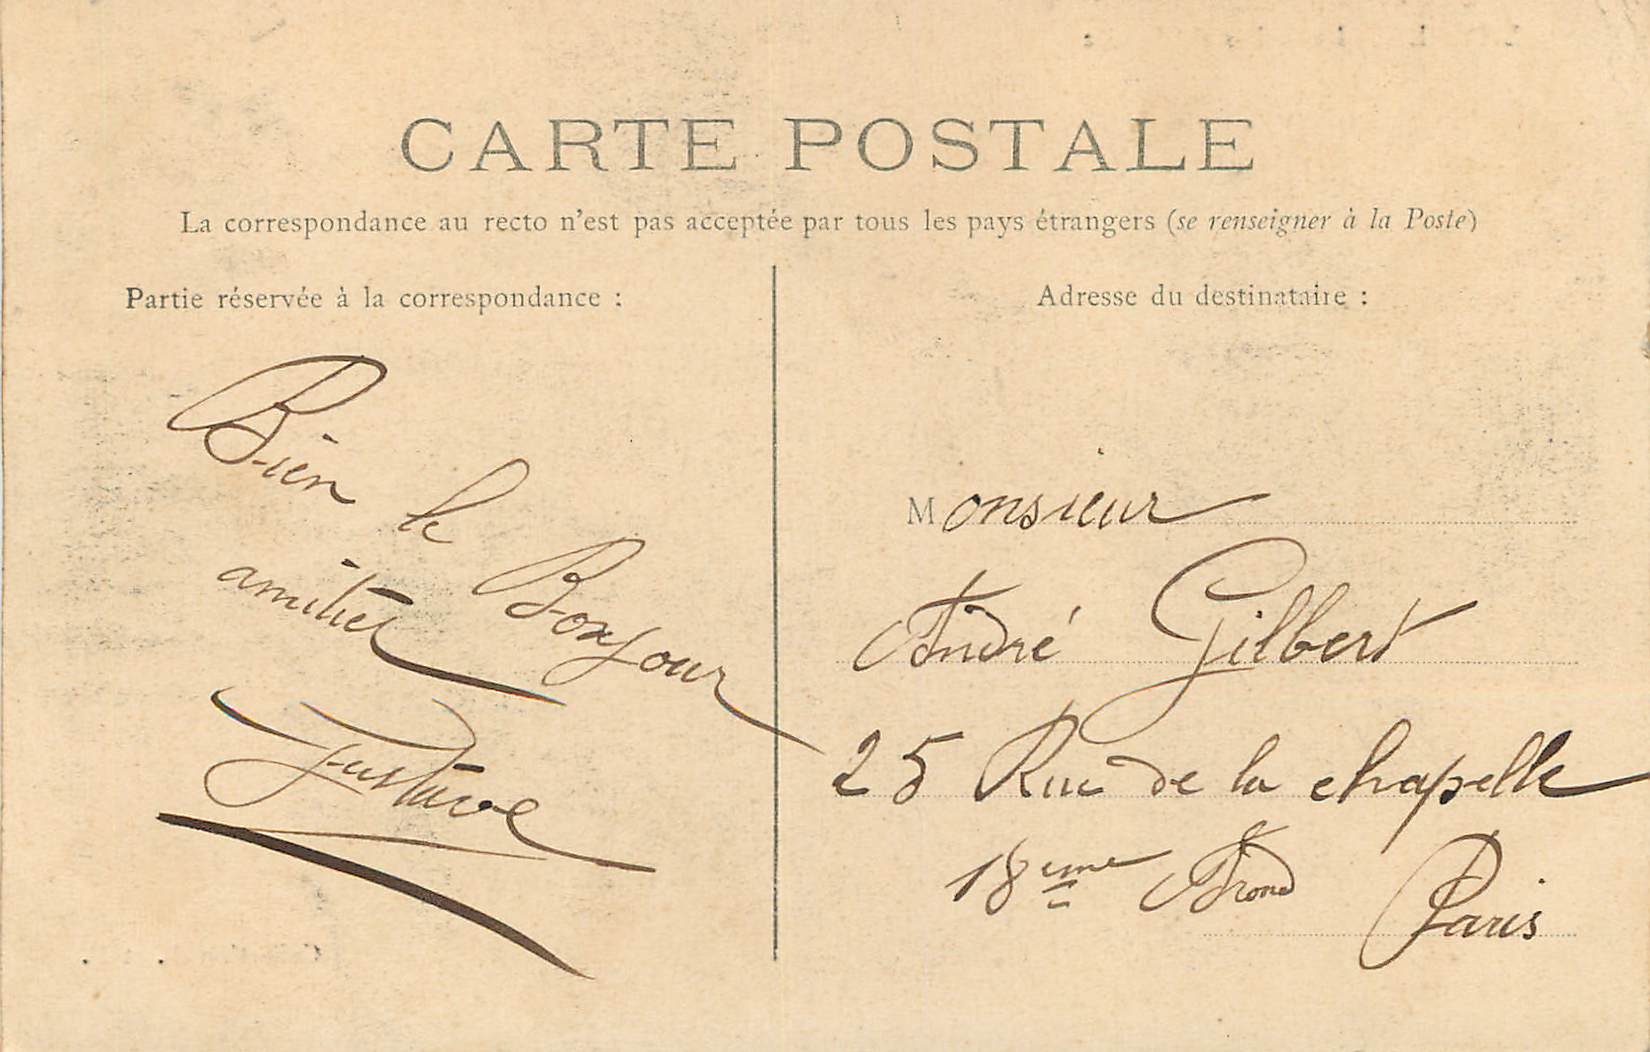 CARTE POSTALE
La correspondance au recto n'est pas acceptée par tous les pays étrangers (se renseigner à la Poste)
Partie réservée à la correspondance :
Bien le Bonjour
amitiés
Gustave
Adresse du destinataire :
Monsieur
André Gilbert
25 Rue de la chapelle
18eme Arond
Paris